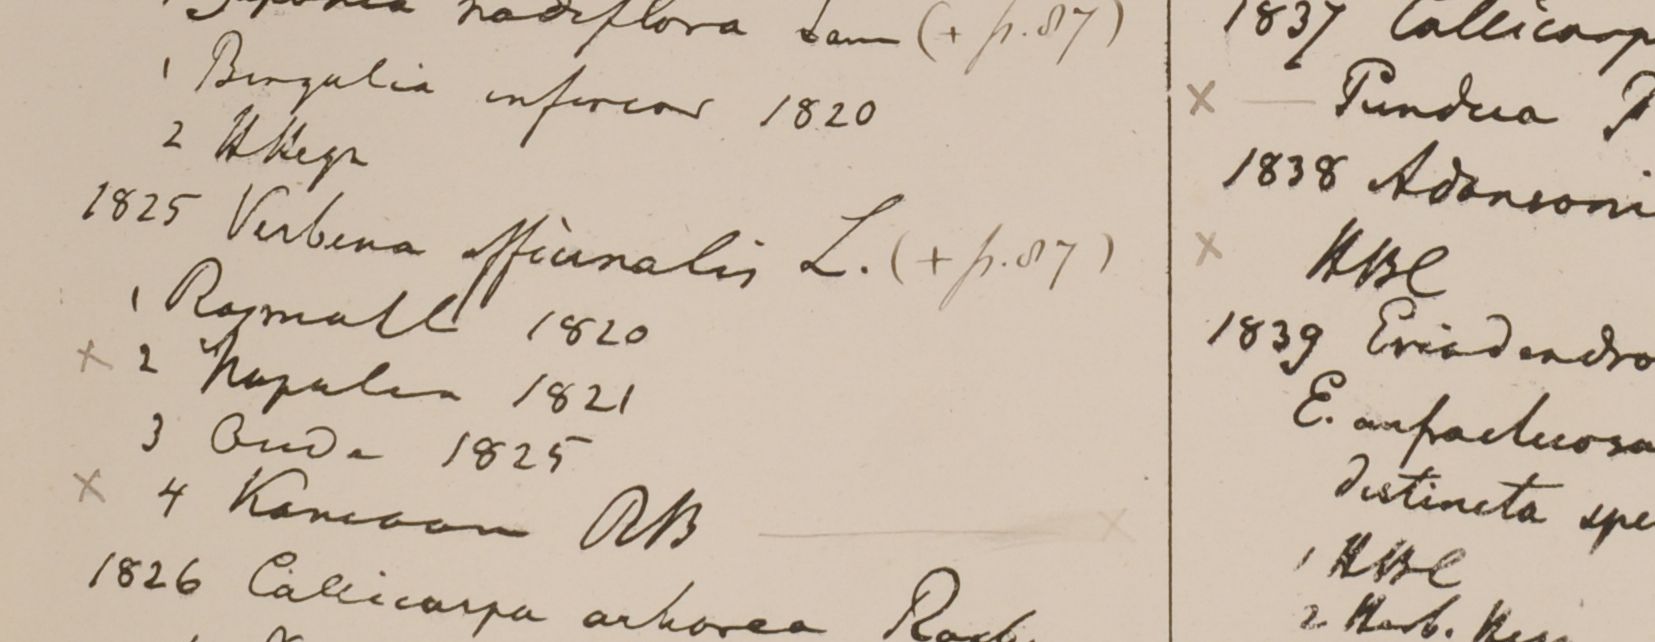 nodiflora Lam (+ p.87)
1 Bengalia inferior 1820
2 HHeyn
1825 Verbena officinalis L. (+ p.87)
1 Rajmahl 1820
x 2 Napalia 1821
3 Oude 1825
x 4 Kamaoon RB x
1826 Callicarpa arborea Roxb
1837 Callicarp
x — Pundua
1838 Adansoni
x HBC
1839 Eriodendro
E. anfractuosa
distincta spe
1 HBC
2 Herb.